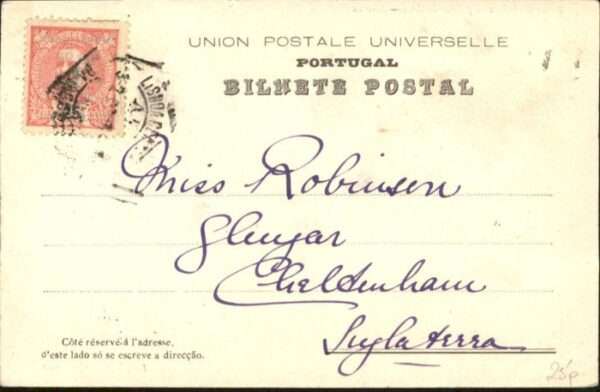 UNION POSTALE UNIVERSELLE
PORTUGAL
BILHETE POSTAL
LISBOA
Miss Robinson
Glengar
Cheltenham
Inglaterra
Côté réservé à l'adresse,
d'este lado só se escreve a direcção.
25p